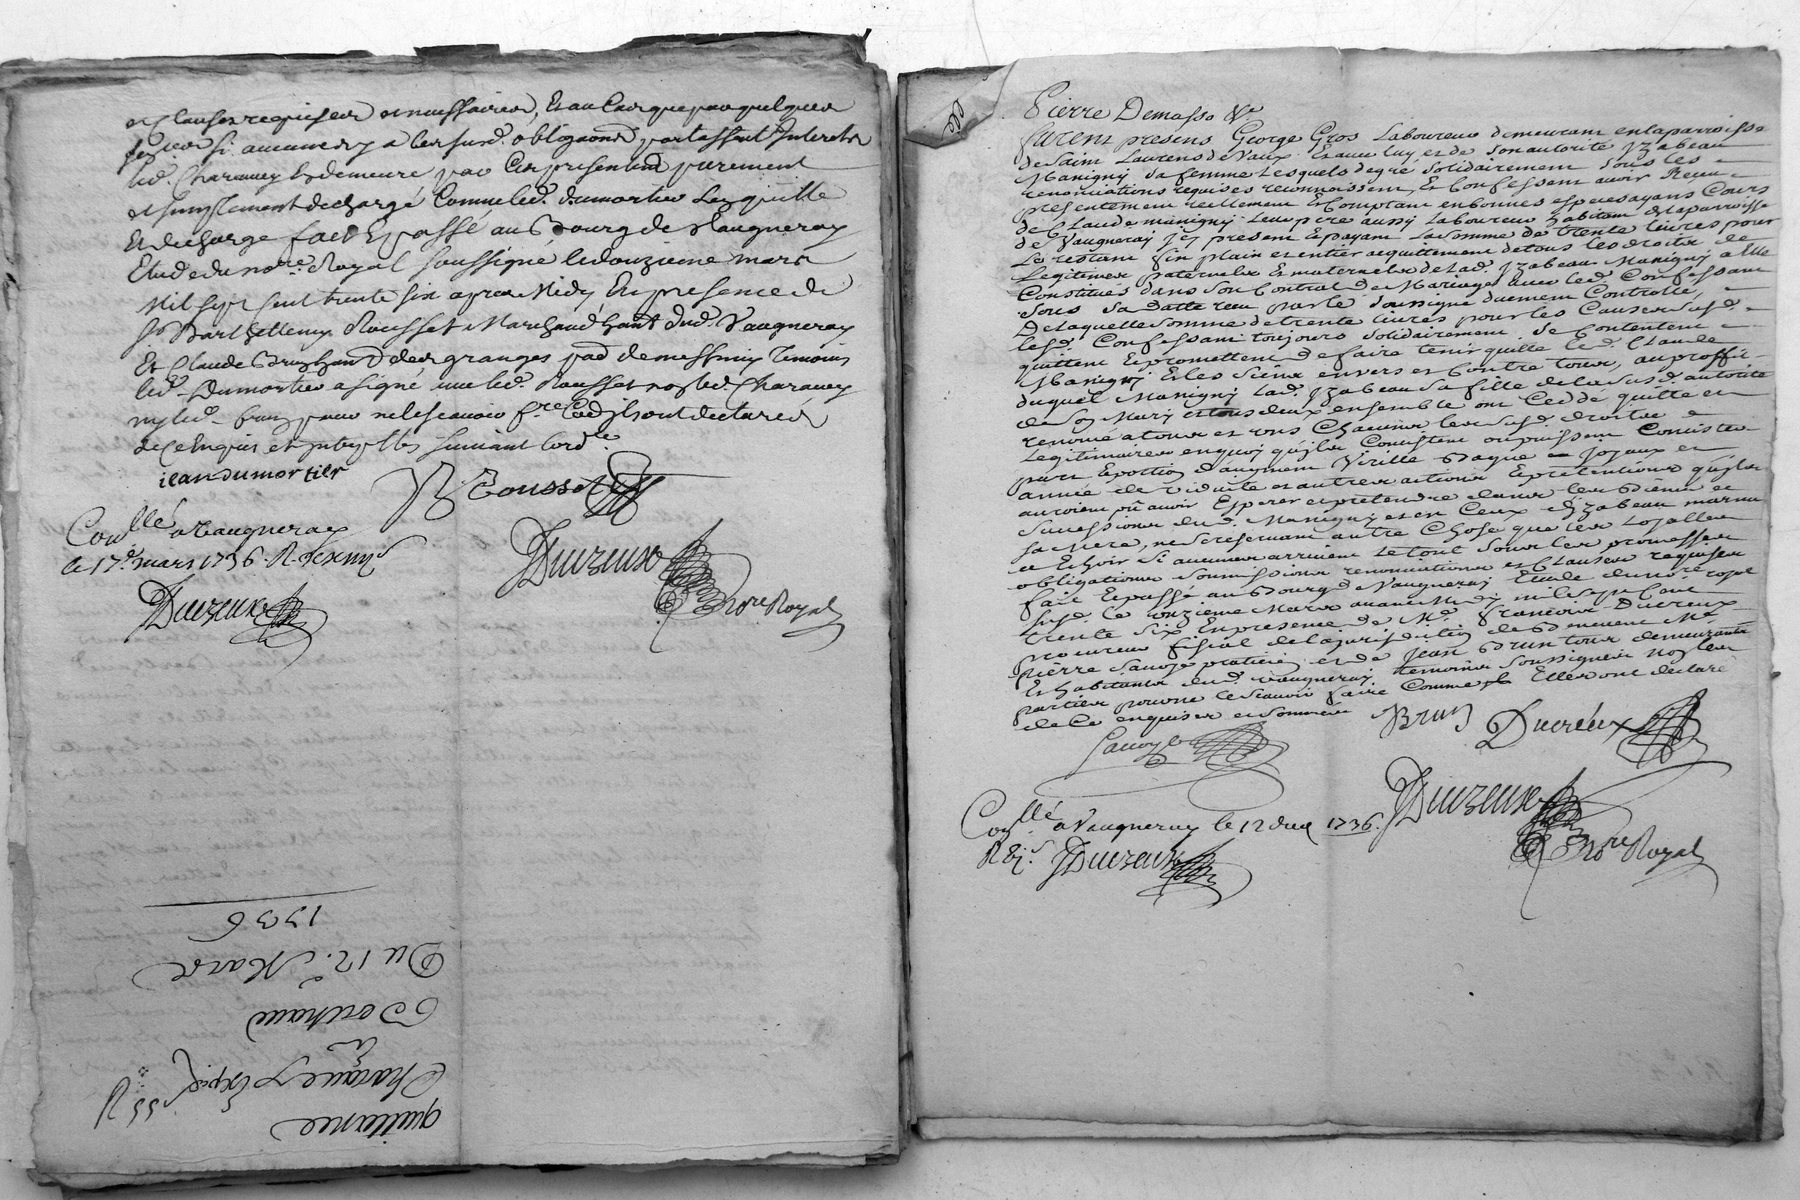 et clauses requises et necessaires, et au cas que par quelques
si aucunes y a les susd. obligaons, portassent Interets
led. Charavey demeure par Ces presentes purement
et simplement dechargé Comme led. dumortier Lesquitte
Et decharge fait Et passé au Bourg de Vaugneray
Etude du nore. Royal soussigné le douzieme mars
Mil sept Cent trente six apres Midy En presence de
Sr Barthellemy Rousset Marchand habt. dud. Vaugneray
Et Claude habt. des granges temoins
led. Dumortier a signé avec led. Rousset non led. Charavey
ny led. pour ne le scavoir fre. ont declarés
de Ce Enquis et suivant lord.ce
jean dumortier
Rousset
Conllé. a Vaugneray
le 17e. mars 1736. R.
Ducreux
Ducreux
Nore Royal
1736
Du 12e. Mars
quittance
Charavey
Pierre Demasso &c
Furent presens George Gros Laboureur demeurant en la parroisse
de Saint Laurens de Vaux Et avec luy et de son autorité Yzabeau
Manigny sa femme Lesquels de gré solidairement sous les
renonciations requises reconnoissent, Et Confessent avoir Receu
presentement reellement Et Comptant en bonnes especes ayans Cours
de Claude manigny leur pere aussy Laboureur habitant de la parroisse
de Vaugneray Icy present Et payant La somme de trente livres pour
Le restant fin plain et entier acquittement de tous les droits de
Legitimes paternels Et maternels de lad. Yzabeau Manigny a Elle
Constitués dans son Contrat de Mariage avec led. Confessant
sous sa datte receu par le soussigné duement Controllé,
De laquelle somme de trente livres pour les Causes susd.
lesd. Confessans toujours solidairement se Contentent
quittent Et promettent de faire tenir quitte led. Claude
Manigny Et les siens envers et Contre tous, au proffit
duquel Manigny lad. Yzabeau sa fille de la susd. autorité
de son Mary et tous deux ensemble ont Cedé quitté et
renoncé a tous et uns Chacuns les susd. droits
Legitimaires en quoy qu'ils Consistent ou puissent Consister
part Portion d'augment Virille Bague Joyaux et
année de viduité et autres actions Et pretentions qu'ils
auroient pû avoir Esperer et pretendre dans les Biens et
successions dud. Manigny et en Ceux d'Yzabeau
sa Mere, ne se reservant autre Chose que les Loyalles
et Echoir si aucunes arrivent Le tout sous les promesses
obligations soumissions renonciations et Clauses requises
fait Et passé au Bourg de Vaugneray Etude du nore. royal
susd. Ce onzieme Mars avant Midy mil sept Cent
trente six En presence de Me. françois Ducreux
procureur fiscal de la jurisdiction de Benevent Me.
pierre Savoye praticien et de Jean Brun tous demeurants
Et habitants dud. Vaugneray temoins soussignés Non les
parties pour ne le scavoir faire Comme Elles ont declaré
de Ce enquises et sommées
Brun
Ducreux
Savoye
Ducreux
Nore Royal
Conllé. a Vaugneray le 12 dud 1736.
Ducreux